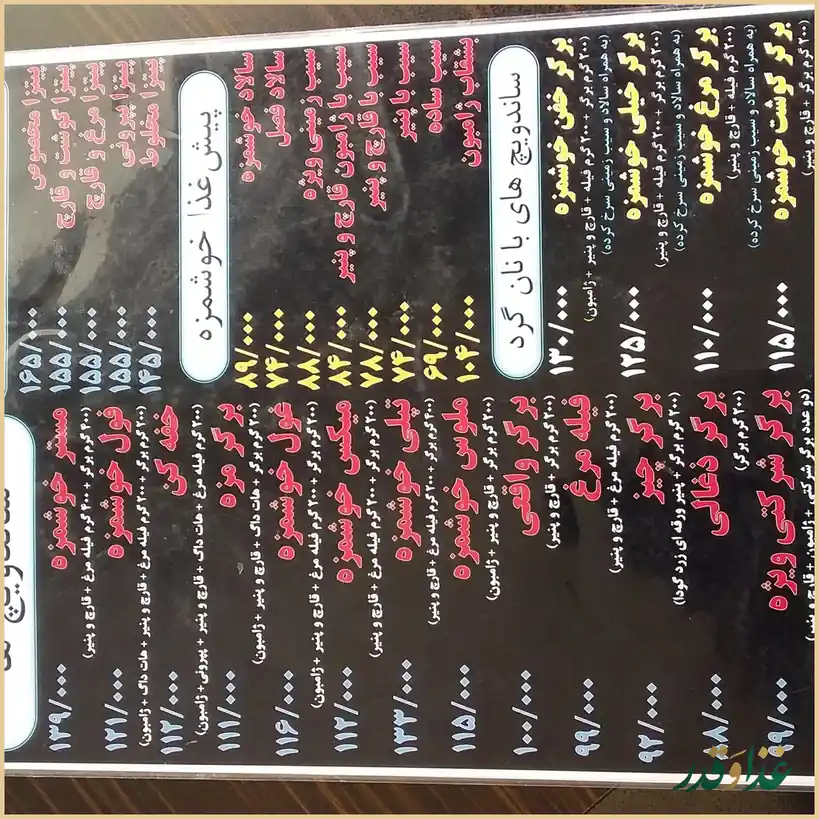 پیتزا مخصوص ۱۶۵/۰۰۰
پیتزا گوشت و قارچ ۱۵۵/۰۰۰
پیتزا مرغ و قارچ ۱۵۵/۰۰۰
پیتزا پپرونی ۱۵۵/۰۰۰
پیتزا مخلوط ۱۴۵/۰۰۰
پیش غذا خوشمزه
سالاد خوشمزه ۸۹/۰۰۰
سالاد فصل ۷۴/۰۰۰
سیب زمینی ویژه ۸۸/۰۰۰
سیب با ژامبون قارچ و پنیر ۸۴/۰۰۰
سیب با قارچ و پنیر ۷۸/۰۰۰
سیب با پنیر ۷۴/۰۰۰
سیب ساده ۶۹/۰۰۰
بشقاب ژامبون ۱۰۴/۰۰۰
ساندویچ های با نان گرد
برگر خفن خوشمزه ۱۳۰/۰۰۰
(۲۰۰ گرم برگر + ۲۰۰ گرم فیله + قارچ و پنیر + ژامبون)
(به همراه سالاد و سیب زمینی سرخ کرده)
برگر خیلی خوشمزه ۱۲۵/۰۰۰
(۲۰۰ گرم برگر + ۲۰۰ گرم فیله + قارچ و پنیر)
(به همراه سالاد و سیب زمینی سرخ کرده)
برگر مرغ خوشمزه ۱۱۰/۰۰۰
(۲۰۰ گرم فیله + قارچ و پنیر)
(به همراه سالاد و سیب زمینی سرخ کرده)
برگر گوشت خوشمزه ۱۱۵/۰۰۰
(۲۰۰ گرم برگر + قارچ و پنیر)
مستر خوشمزه ۱۳۹/۰۰۰
(۲۰۰ گرم برگر + ۲۰۰ گرم فیله مرغ + قارچ و پنیر)
فول خوشمزه ۱۲۱/۰۰۰
(۲۰۰ گرم برگر + ۲۰۰ گرم فیله مرغ + قارچ و پنیر + هات داگ + ژامبون)
خفه کن ۱۱۲/۰۰۰
(۲۰۰ گرم فیله مرغ + هات داگ + قارچ و پنیر + پپرونی + ژامبون)
برگر مزه ۱۱۱/۰۰۰
(۲۰۰ گرم برگر + هات داگ + قارچ و پنیر + ژامبون)
غول خوشمزه ۱۱۶/۰۰۰
(۲۰۰ گرم برگر + ۲۰۰ گرم فیله مرغ + قارچ و پنیر + ژامبون)
میکس خوشمزه ۱۱۲/۰۰۰
(۲۰۰ گرم برگر + ۲۰۰ گرم فیله مرغ + قارچ و پنیر)
تپلی خوشمزه ۱۳۳/۰۰۰
(۲۰۰ گرم برگر + ۲۰۰ گرم فیله مرغ + قارچ و پنیر)
ملوس خوشمزه ۱۱۵/۰۰۰
(۲۰۰ گرم برگر + قارچ و پنیر + ژامبون)
برگر واقعی ۱۰۰/۰۰۰
(۲۰۰ گرم برگر + قارچ و پنیر)
فیله مرغ ۹۹/۰۰۰
(۲۰۰ گرم فیله مرغ + قارچ و پنیر)
برگر چیز ۹۲/۰۰۰
(۲۰۰ گرم برگر + پنیر ورقه ای زرد گودا)
برگر ذغالی ۸/۰۰۰
(۲۰۰ گرم برگر)
برگر شرکتی ویژه ۹۹/۰۰۰
(دو عدد برگر شرکتی + ژامبون + قارچ و پنیر)
غذا و قدر